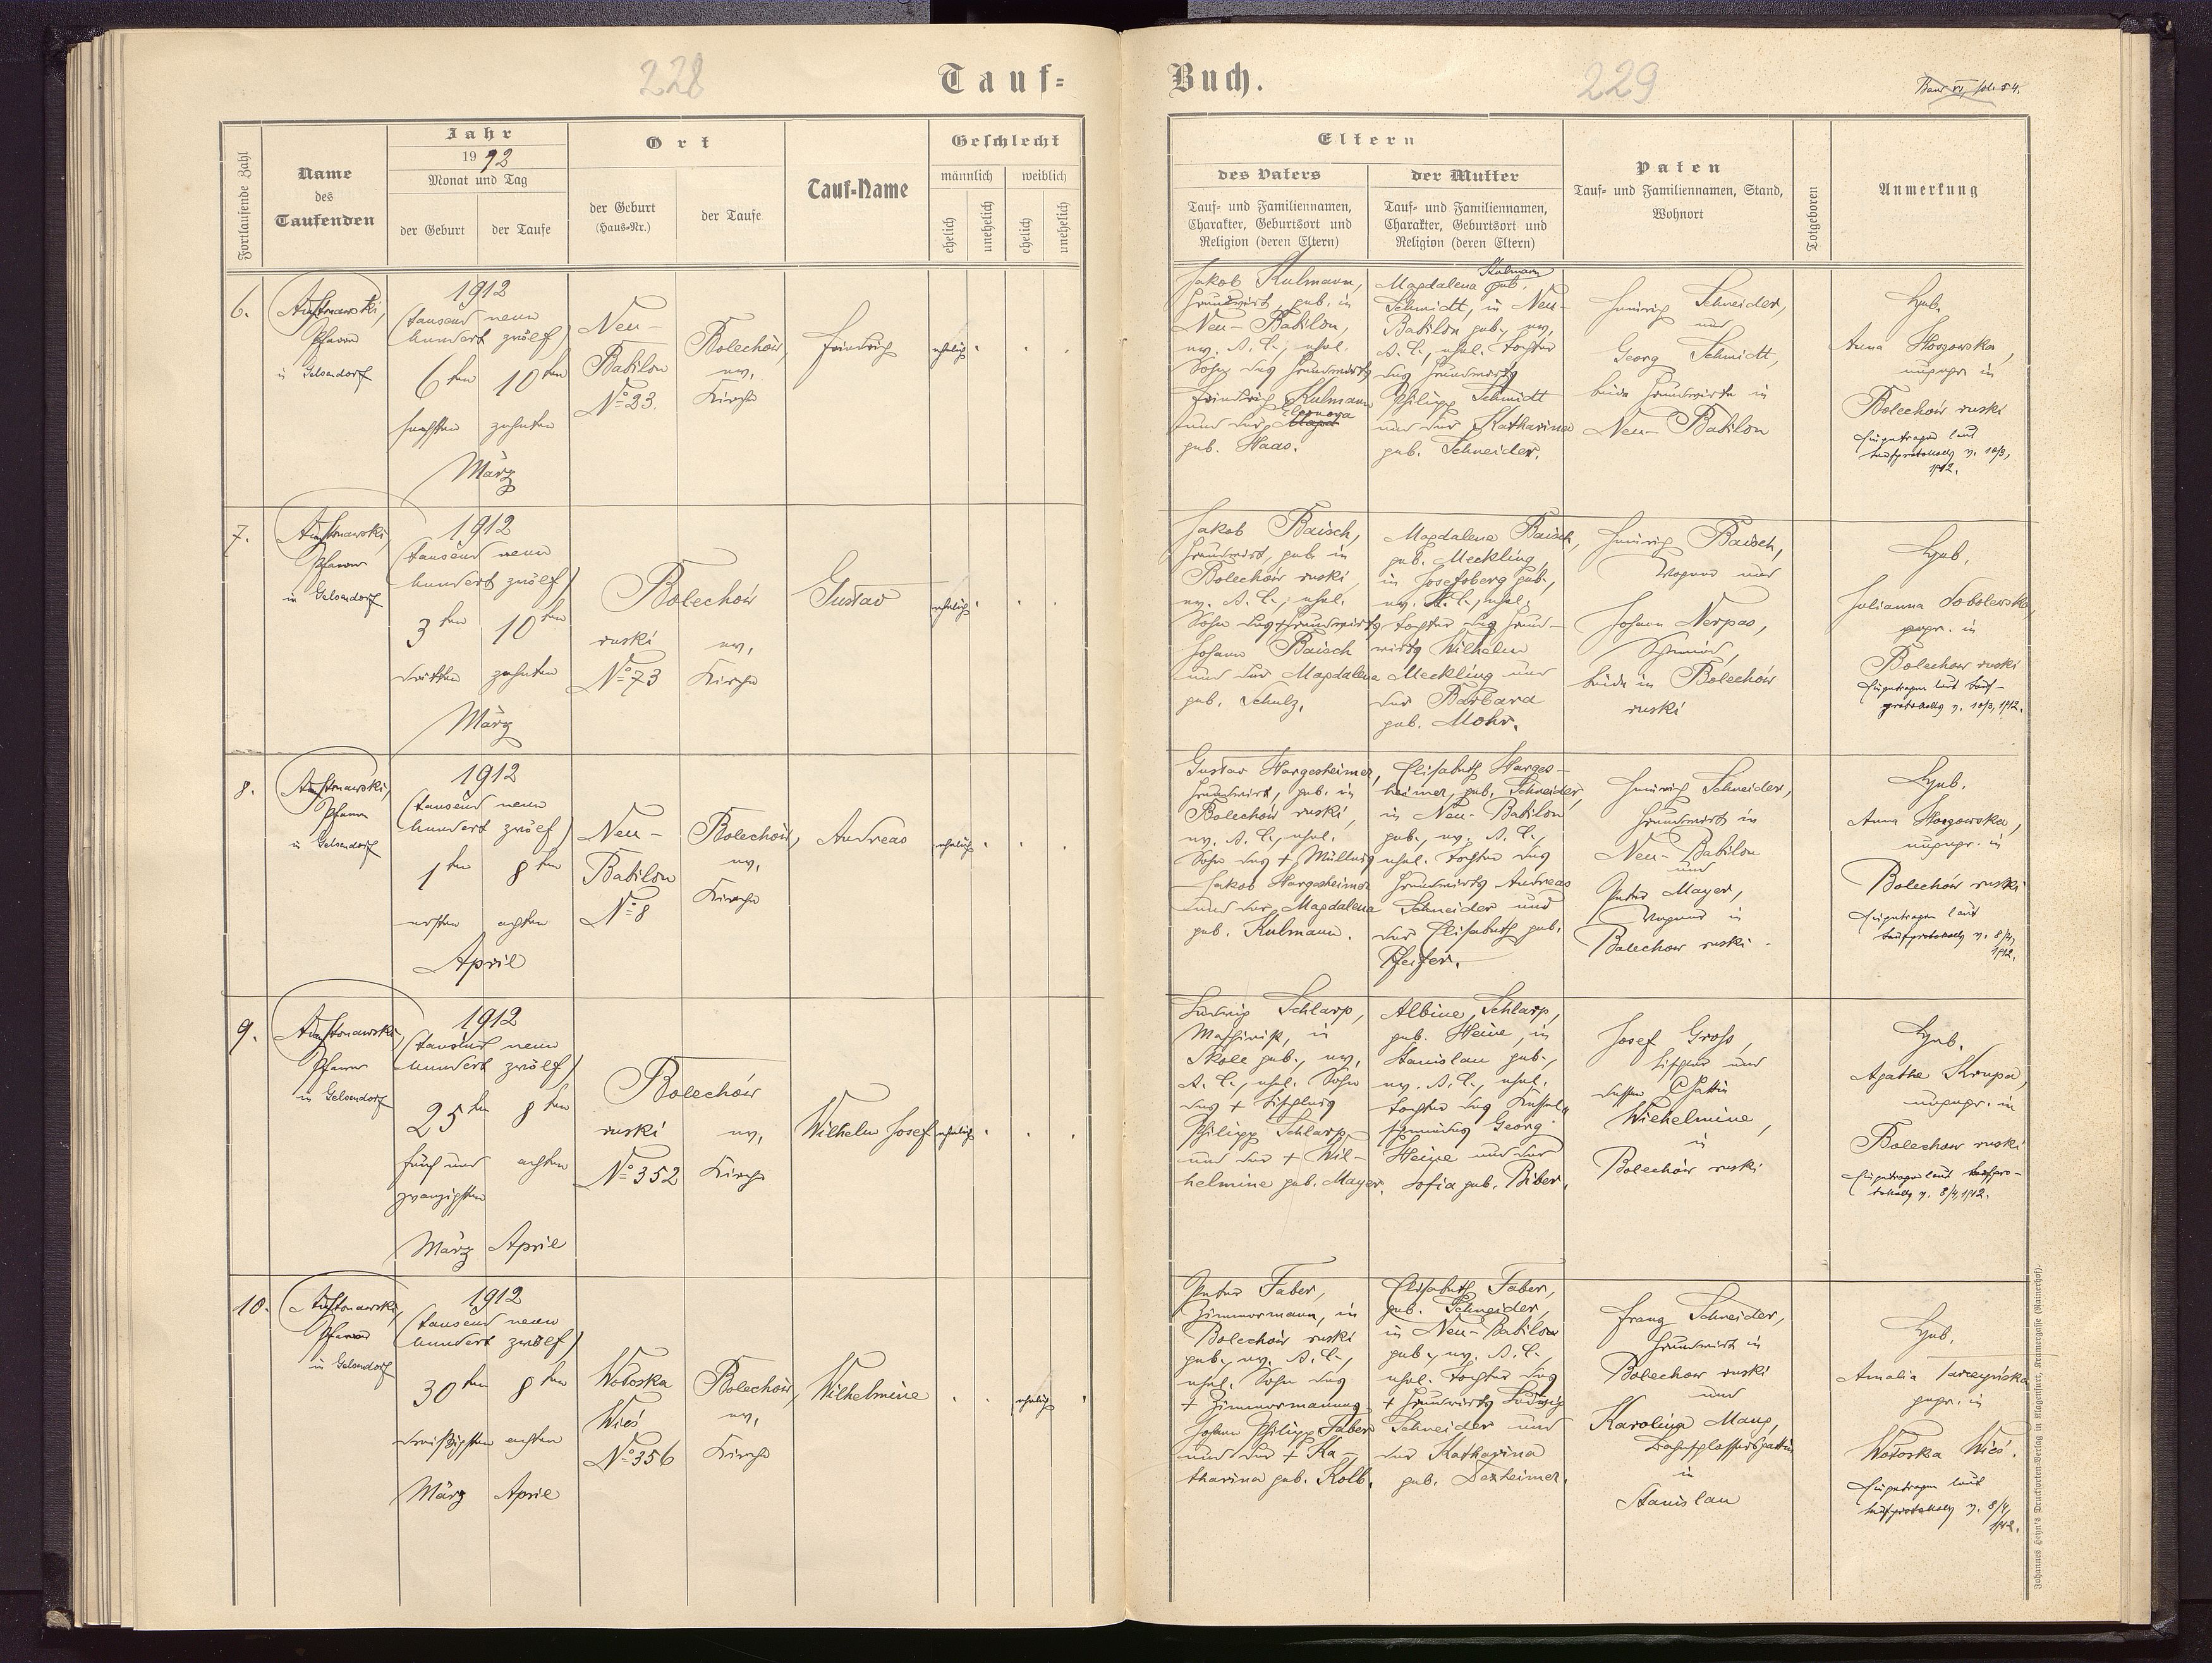 228
Tauf=
Buch.
229
Band VI, fol. 54.
Fortlaufende Zahl
Name
des
Taufenden
Jahr
1912
Monat und Tag
der Geburt
der Taufe
Ort
der Geburt
(Haus=Nr.)
der Taufe
Tauf=Name
Geschlecht
männlich
weiblich
ehelich
unehelich
ehelich
unehelich
Eltern
des Vaters
Tauf= und Familiennamen,
Charakter, Geburtsort und
Religion (deren Eltern)
der Mutter
Tauf= und Familiennamen,
Charakter, Geburtsort und
Religion (deren Eltern)
Paten
Tauf= und Familiennamen, Stand,
Wohnort
Totgeboren
Anmerkung
6.
Pfarrer
in Gelsendorf
1912
(tausend neun
hundert zwölf)
6ten 10ten
sechsten zehnten
März
Neu-
Babilon
No 23.
Bolechów,
ev.
Kirche
Friedrich
ehelich
Jakob Kulmann,
Grundwirt, geb. in
Neu-Babilon,
ev. A. C., ehel.
Sohn des Grundwirts
Friedrich Kulmann
und der
geb. Haas.
Kulmann
Magdalena geb.
Schmidt, in Neu-
Babilon geb., ev.
A. C., ehel. Tochter
des Grundwirts
Philipp Schmidt
und der Katharina
geb. Schneider.
Heinrich Schneider,
und
Georg Schmidt,
beide Grundwirte in
Neu-Babilon
Heb.
Anna
ungepr. in
Bolechów ruski
Eingetragen laut
Taufprotokolls v. 10/3,
1912.
7.
Pfarrer
in Gelsendorf
1912
(tausend neun
hundert zwölf)
3ten 10ten
dritten zehnten
März
Bolechów
ruski ev.
No 73 Kirche
Gustav
ehelich
Jakob Baisch,
Grundwirt, geb. in
Bolechów ruski,
ev. A. C., ehel.
Sohn des + Grundwirts
Johann Baisch
und der Magdalena
geb. Schulz.
Magdalena Baisch,
geb. Meckling,
in Josefsberg geb.,
ev. A. C., ehel.
Tochter des Grund-
wirts Wilhelm
Meckling und
der Barbara
geb. Mohr.
Heinrich Baisch,
Wagner und
Johann Nerpas,
Schmied,
beide in Bolechów
ruski
Heb.
Julianna Sobolewska,
gepr. in
Bolechow ruski
Eingetragen laut Tauf-
protokolls v. 10/3, 1912.
8.
Pfarrer
in Gelsendorf
1912
(tausend neun
hundert zwölf)
1ten 8ten
ersten achten
April
Neu-
Babilon
No 8
Bolechów,
ev.
Kirche
Andreas
ehelich
Gustav Hargesheimer,
Grundwirt, geb. in
Bolechów ruski,
ev. A. C., ehel.
Sohn des + Müllers
Jakob Hargesheimer
und der Magdalena
geb. Kulmann.
Elisabeth Harges-
heimer, geb. Schneider,
in Neu-Babilon
geb., ev. A. C.,
ehel. Tochter des
Grundwirts Andreas
Schneider und
der Elisabeth geb.
Pfeifer.
Heinrich Schneider,
Grundwirt in
Neu-Babilon
und
Peter Mayer,
Wagner in
Bolechow ruski.
Heb.
Anna
ungepr. in
Bolechów ruski
Eingetragen laut
Taufprotokolls v. 8/4,
1912.
9.
Pfarrer
in Gelsendorf
1912
(tausend neun
hundert zwölf)
25ten 8ten
fünf und achten
zwanzigsten
März April
Bolechów
ruski ev.
No 352 Kirche
Wilhelm Josef
ehelich
Ludwig Schlarp,
Maschinist, in
Skole geb., ev.
A. C., ehel. Sohn
des + Tischlers
Philipp Schlarp
und der + Wil-
helmine geb. Mayer.
Albine Schlarp,
geb. Heine, in
Stanislau geb.,
ev. A. C., ehel.
Tochter des Kessel-
schmiedes Georg
Heine und der
Sofia geb. Biber.
Josef Groß,
Tischler und
dessen Gattin
Wilhelmine,
in
Bolechów ruski
Heb.
Agathe Krupa,
ungepr. in
Bolechow ruski
Eingetragen laut Taufpro-
tokolls v. 8/4, 1912.
10.
Pfarrer
in Gelsendorf
1912
(tausend neun
hundert zwölf)
30ten 8ten
dreißigsten achten
März April
Wołoska
Wieś
No 356
Bolechów,
ev.
Kirche
Wilhelmine
ehelich
Peter Faber,
Zimmermann, in
Bolechów ruski
geb., ev. A. C.,
ehel. Sohn des
+ Zimmermannes
Johann Philipp Faber
und der + Ka-
tharina geb. Kolb.
Elisabeth Faber,
geb. Schneider,
in Neu-Babilon
geb., ev. A. C.,
ehel. Tochter des
+ Grundwirts Ludwig
Schneider und
der Katharina
geb. Dexheimer.
Franz Schneider,
Grundwirt in
Bolechow ruski
und
Karolina Mang,
in
Stanislau
Heb.
Amalia
gepr. in
Wołoska Wieś.
Eingetragen laut
Taufprotokolls v. 8/4,
1912.
Johannes Heyn's Drucksorten=Verlag in Klagenfurt, Kramergasse (Rainerhof).